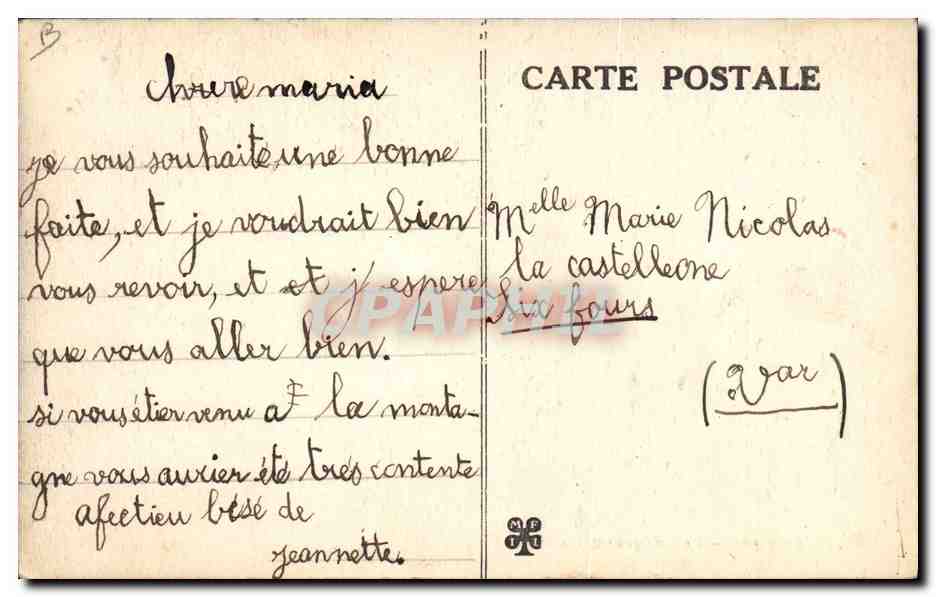 B
chere maria
je vous souhaite une bonne
faite, et je voudrait bien
vous revoir, et et j'espere
que vous aller bien.
si vous étier venu a la monta-
gne vous aurier été trés contente
afectieu bésé de
jeannette.
CARTE POSTALE
Melle Marie Nicolas
la castelleone
Six fours
(Var)
CPAPHIL
M F
T I